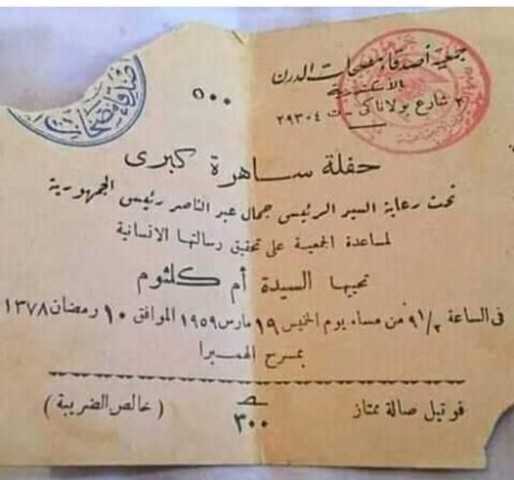 جمعية أصدقاء مصحات الدرن
بالاسكندرية
٢ شارع بولاناكى - ت ٢٩٣٠٤
٥٠٠
أصدقاء مصحات
حفلة ساهرة كبرى
تحت رعاية السيد الرئيس جمال عبد الناصر رئيس الجمهورية
لمساعدة الجمعية على تحقيق رسالتها الانسانية
تحييها السيدة أم كلثوم
فى الساعة ٩١/٢ من مساء يوم الخميس ١٩ مارس ١٩٥٩ الموافق ١٠ رمضان ١٣٧٨
بمسرح الهمبرا
فوتيل صالة ممتاز ٣٠٠ (خالص الضريبة)